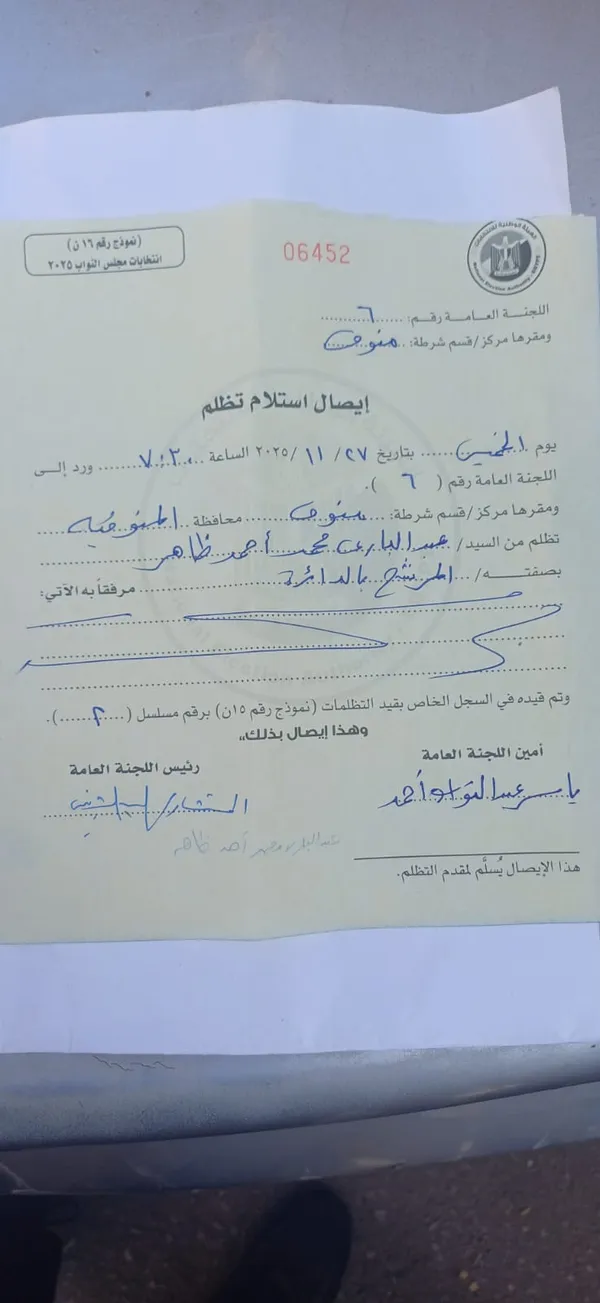 (نموذج رقم ١٦ ن)
انتخابات مجلس النواب ٢٠٢٥
06452
الهيئة الوطنية للانتخابات
National Election Authority
اللجنة العامة رقم: ٦
ومقرها مركز/قسم شرطة: منوف
إيصال استلام تظلم
يوم الخميس بتاريخ ٢٧/ ١١ /٢٠٢٥ الساعة ٧:٣٠ ورد إلى
اللجنة العامة رقم ( ٦ ).
ومقرها مركز/قسم شرطة: منوف محافظة المنوفيه
تظلم من السيد/ محمد أحمد ظاهر
بصفتـــه/ المرشح بالدائرة مرفقاً به الآتي:
وتم قيده في السجل الخاص بقيد التظلمات (نموذج رقم ١٥ن) برقم مسلسل (٢).
وهذا إيصال بذلك،،
أمين اللجنة العامة
رئيس اللجنة العامة
ياسر عبد التواب أحمد
المستشار/
هذا الإيصال يُسلَّم لمقدم التظلم.